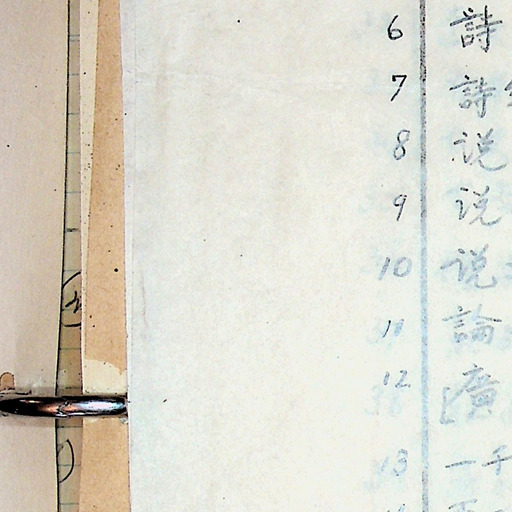 6 詩
7 詩
8 说
9 说
10 说
11 論
12 [廣
13 一千